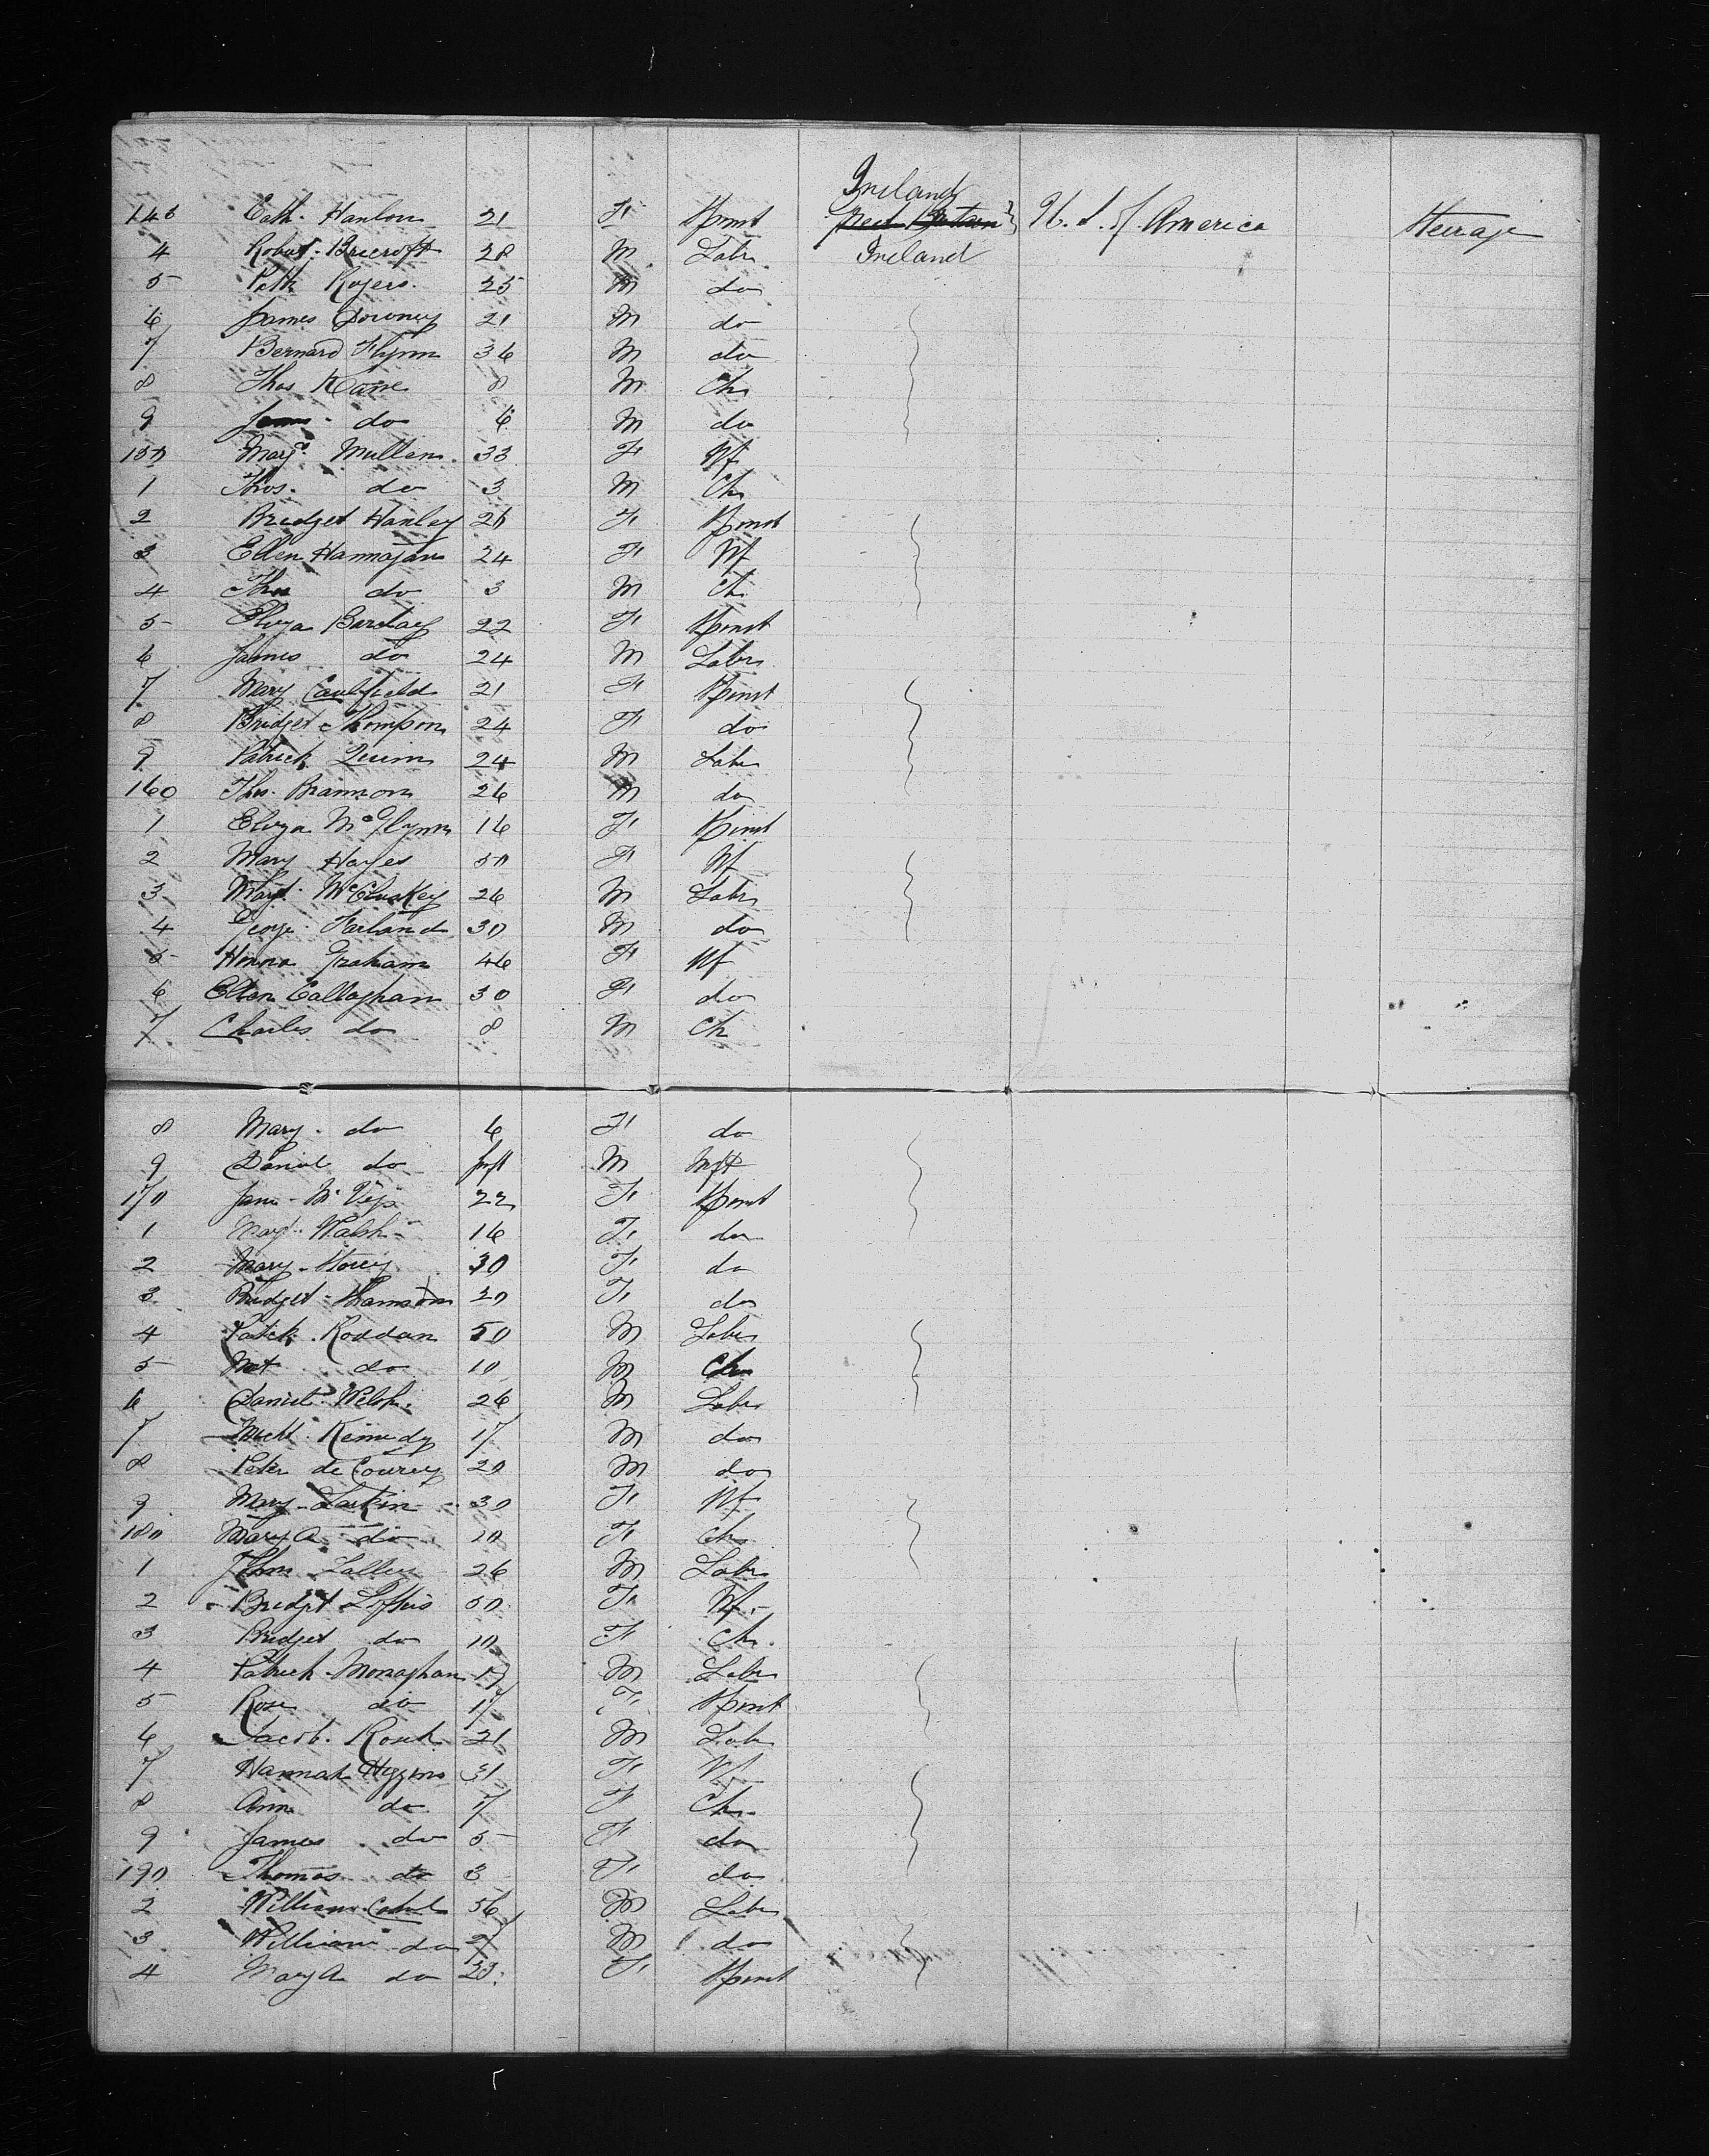 Ireland
143 Cath. Hanlon 21 F Spinst Great Britain U. S. of America Steerage
4 Robert Brecroft 28 M Labr Ireland
5 Patk Rogers 25 M do
6 James Downey 21 M do
7 Bernard Flynn 36 M do
8 Thos Kane 8 M Ch
9 do 6 M do
150 Mary Mullen 33 F Wf
1 Thos. do 3 M Ch
2 Bridget Hanley 20 F Spinst
3 Ellen Hannagan 24 F Wf
4 Thos do 3 M Ch
5 Eliza Barclay 22 F Spinst
6 James do 24 M Labr
7 Mary Caulfield 21 F Spinst
8 Bridget Thompson 24 F do
9 Patrick Quinn 24 M Labr
160 Thos. Brannon 26 M do
1 Eliza McGlynn 16 F Spinst
2 Mary Hayes 50 F Wf
3 McCluskey 26 M Labr
4 George Farland 30 M do
5 Honora Graham 46 F Wf
6 Ellen Callaghan 30 F do
7 Charles do 8 M Ch
8 Mary do 6 F do
9 Daniel do Inft M Inft
170 Jane 22 F Spinst
1 Walsh 16 F do
2 Mary Storey 30 F do
3 Bridget 20 F do
4 Patck Roddan 50 M Labr
5 do 10 M Ch
6 Daniel Welsh 26 M Labr
7 Michl Kennedy 17 M do
8 Peter de Courcy 20 M do
9 Mary Larkin 30 F Wf
180 Mary A do 10 F Ch
1 26 M Labr
2 Bridget Loftus 50 F Wf
3 Bridget do 10 F Ch
4 Patrick Monaghan 19 M Labr
5 Rose do 17 F Spinst
6 Jacob 21 M Labr
7 Hannah Higgins 31 F Wf
8 Ann do 7 F Ch
9 James do 5 F do
190 Thomas do 3 F do
2 William 56 M Labr
3 William do 27 M do
4 Mary A do 23 F Spinst